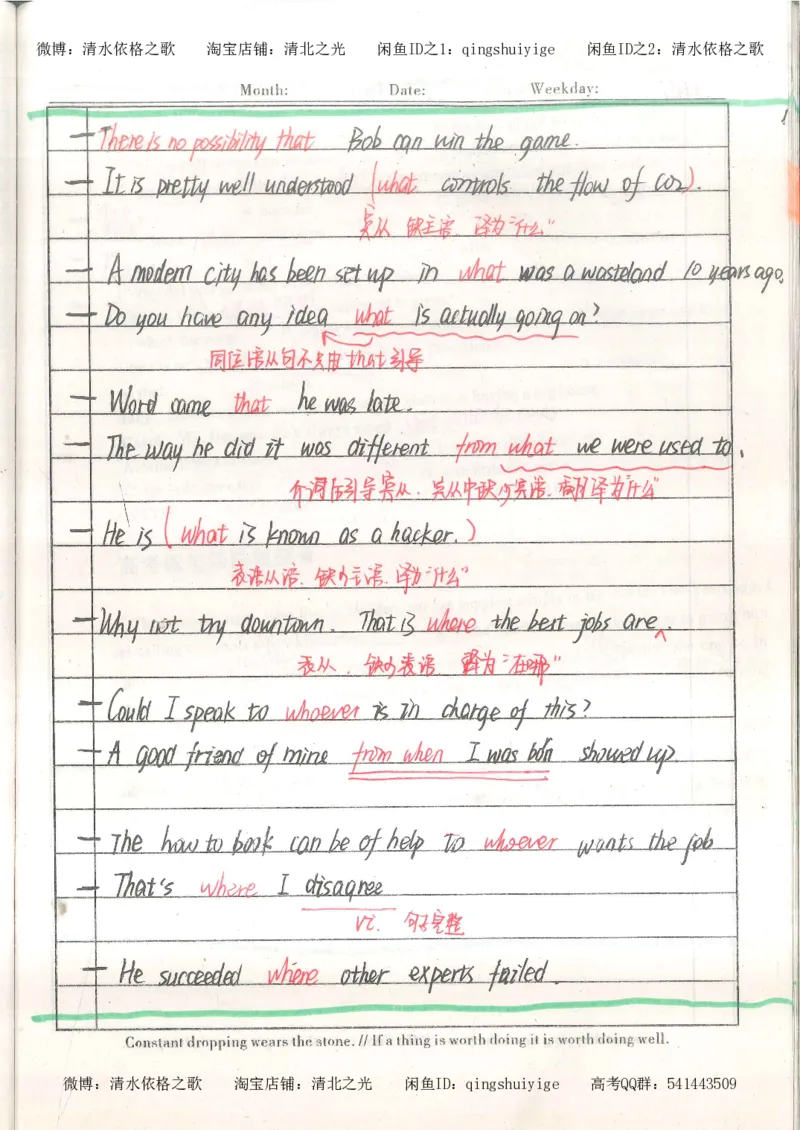 微博：清水依格之歌 淘宝店铺：清北之光 闲鱼ID之1：qingshuiyige 闲鱼ID之2：清水依格之歌
Month: Date: Weekday:
1
— There is no possibility that Bob can win the game.
— It is pretty well understood (what controls the flow of CO2).
宾从 缺主语. 译为"什么"
— A modern city has been set up in what was a wasteland 10 years ago.
— Do you have any idea what is actually going on?
同位语从句不只由that引导
— Word came that he was late.
— The way he did it was different from what we were used to.
介词后引导宾从. 宾从中缺少宾语. 翻译为"什么"
— He is (what is known as a hacker.)
表语从语. 缺少主语. 译为"什么"
— Why not try downtown. That is where the best jobs are.
表从. 缺少表语 译为"在哪"
— Could I speak to whoever is in charge of this?
— A good friend of mine from when I was born showed up.
— The how to book can be of help to whoever wants the job
— That's where I disagree
vi. 句子完整
— He succeeded where other experts failed.
Constant dropping wears the stone. // If a thing is worth doing it is worth doing well.
微博：清水依格之歌 淘宝店铺：清北之光 闲鱼ID：qingshuiyige 高考QQ群：541443509